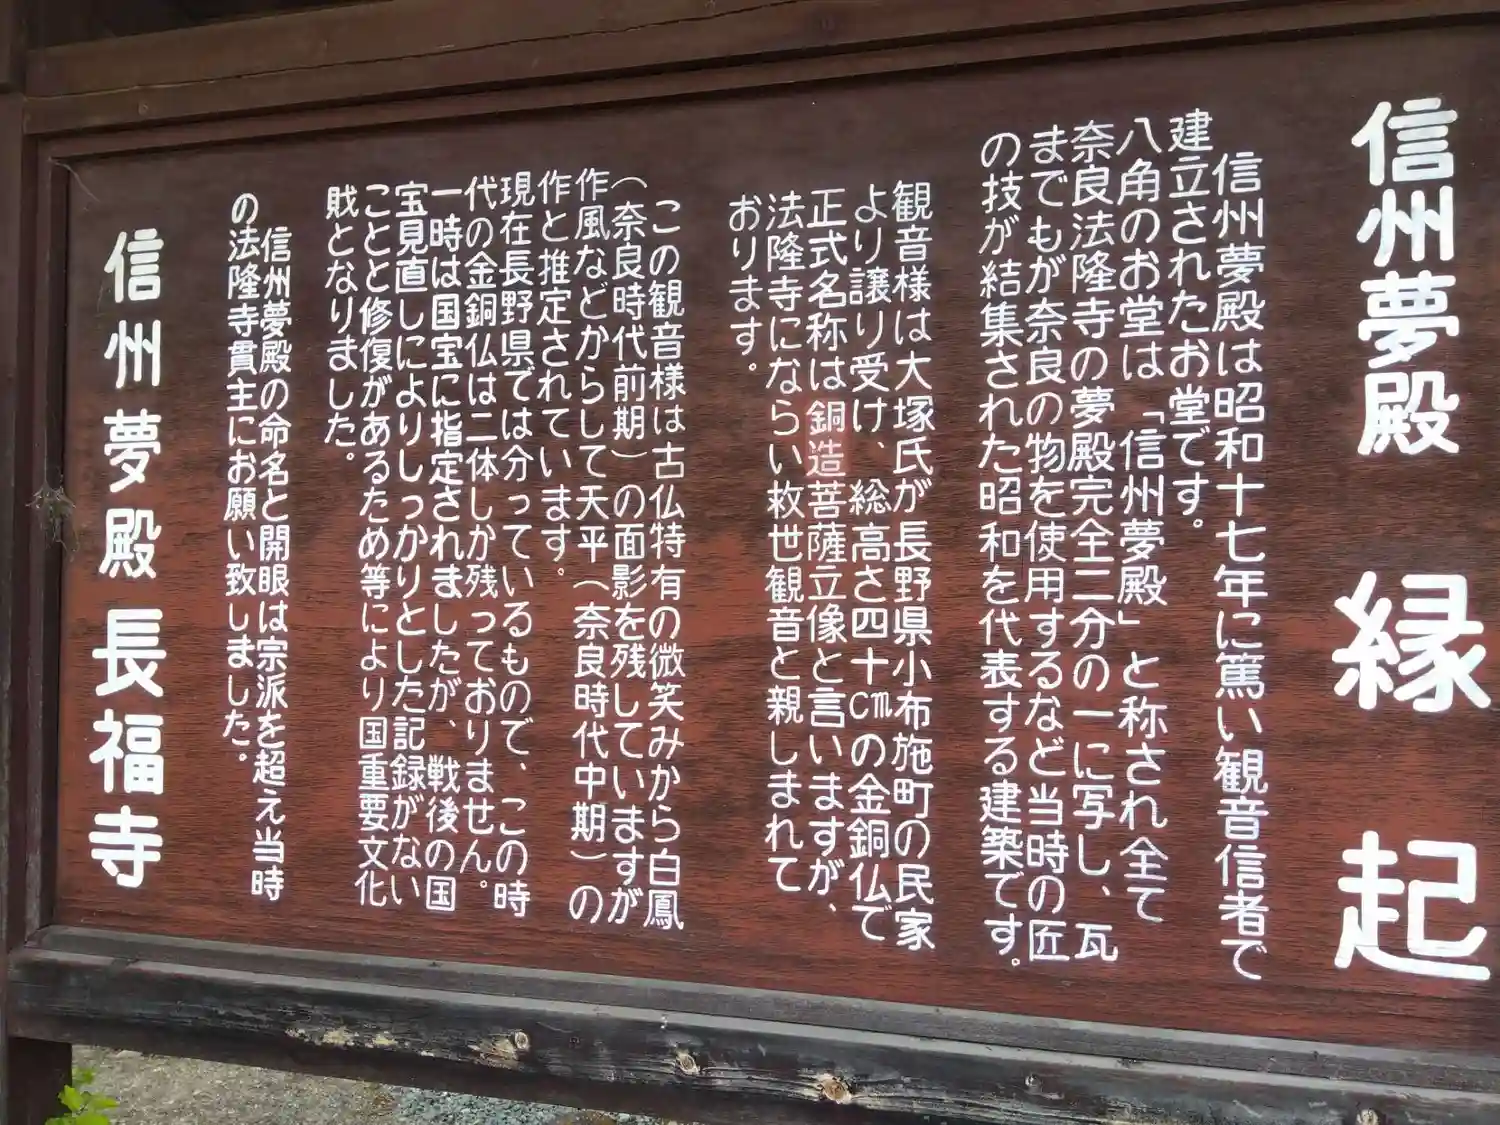 信州夢殿 縁起
信州夢殿は昭和十七年に篤い観音信者で
建立されたお堂です。
八角のお堂は「信州夢殿」と称され全て
奈良法隆寺の夢殿完全二分の一に写し、瓦
までもが奈良の物を使用するなど当時の匠
の技が結集された昭和を代表する建築です。
観音様は大塚氏が長野県小布施町の民家
より譲り受け、総高さ四十㎝の金銅仏で
正式名称は銅造菩薩立像と言いますが、
法隆寺にならい救世観音と親しまれて
おります。
この観音様は古仏特有の微笑みから白鳳
(奈良時代前期)の面影を残していますが
作風などからして天平(奈良時代中期)の
作と推定されています。
現在長野県では分っているもので、この時
代の金銅仏は二体しか残っておりません。
一時は国宝に指定されましたが、戦後の国
宝見直しによりしっかりとした記録がない
ことと修復があるため等により国重要文化
財となりました。
信州夢殿の命名と開眼は宗派を超え当時
の法隆寺貫主にお願い致しました。
信州夢殿 長福寺